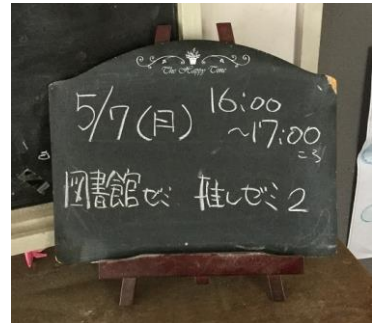 The Happy Time
5/7(月) 16:00
~17:00
ころ
図書館ゼミ 推しゼミ2